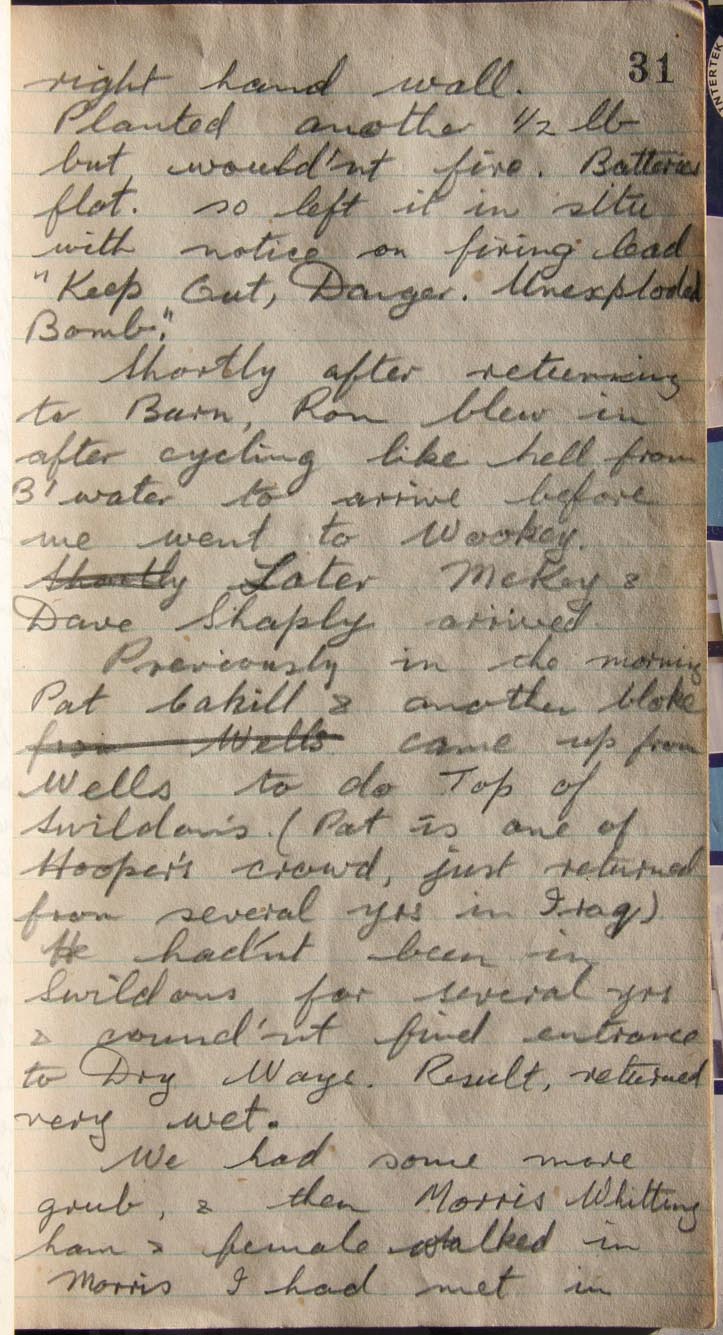 31
right hand wall.
Planted another 1/2 lb
but would'nt fire. Batteries
flat. so left it in situ
with notice on firing lead
"Keep Out, Danger. Unexploded
Bomb."
Shortly after returning
to Barn, Ron blew in
after cycling like hell from
B'water to arrive before
we went to Wookey.
Shortly Later McKey &
Dave Shaply arrived
Previously in the morning
Pat Cahill & another bloke
from Wells came up from
Wells to do Top of
Swildon's. (Pat is one of
Hooper's crowd, just returned
from several yrs in Iraq)
He had'nt been in
Swildons for several yrs
& cound'nt find entrance
to Dry Ways. Result, returned
very wet.
We had some more
grub, & then Morris Whitting
ham & female walked in
Morris I had met in
INTERTEK